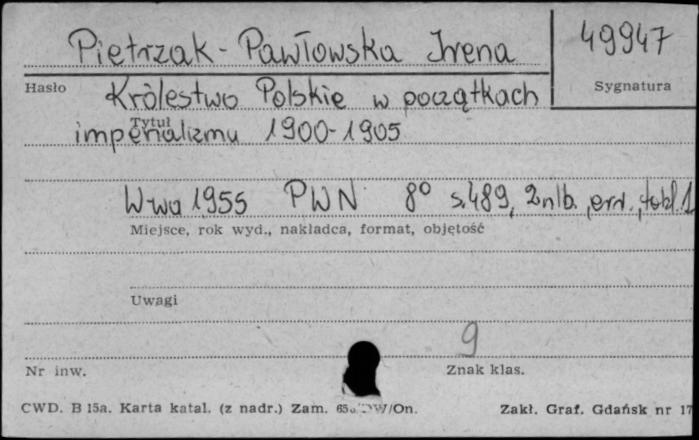 Pietrzak-Pawłowska Irena 49947
Hasło Sygnatura
Królestwo Polskie w początkach
Tytuł
imperializmu 1900-1905
W-wa 1955 PWN 8° s.489, 2nlb., err., tabl.1
Miejsce, rok wyd., nakładca, format, objętość
Uwagi
9
Nr inw. Znak klas.
CWD. B 15a. Karta katal. (z nadr.) Zam. /On. Zakł. Graf. Gdańsk nr 17